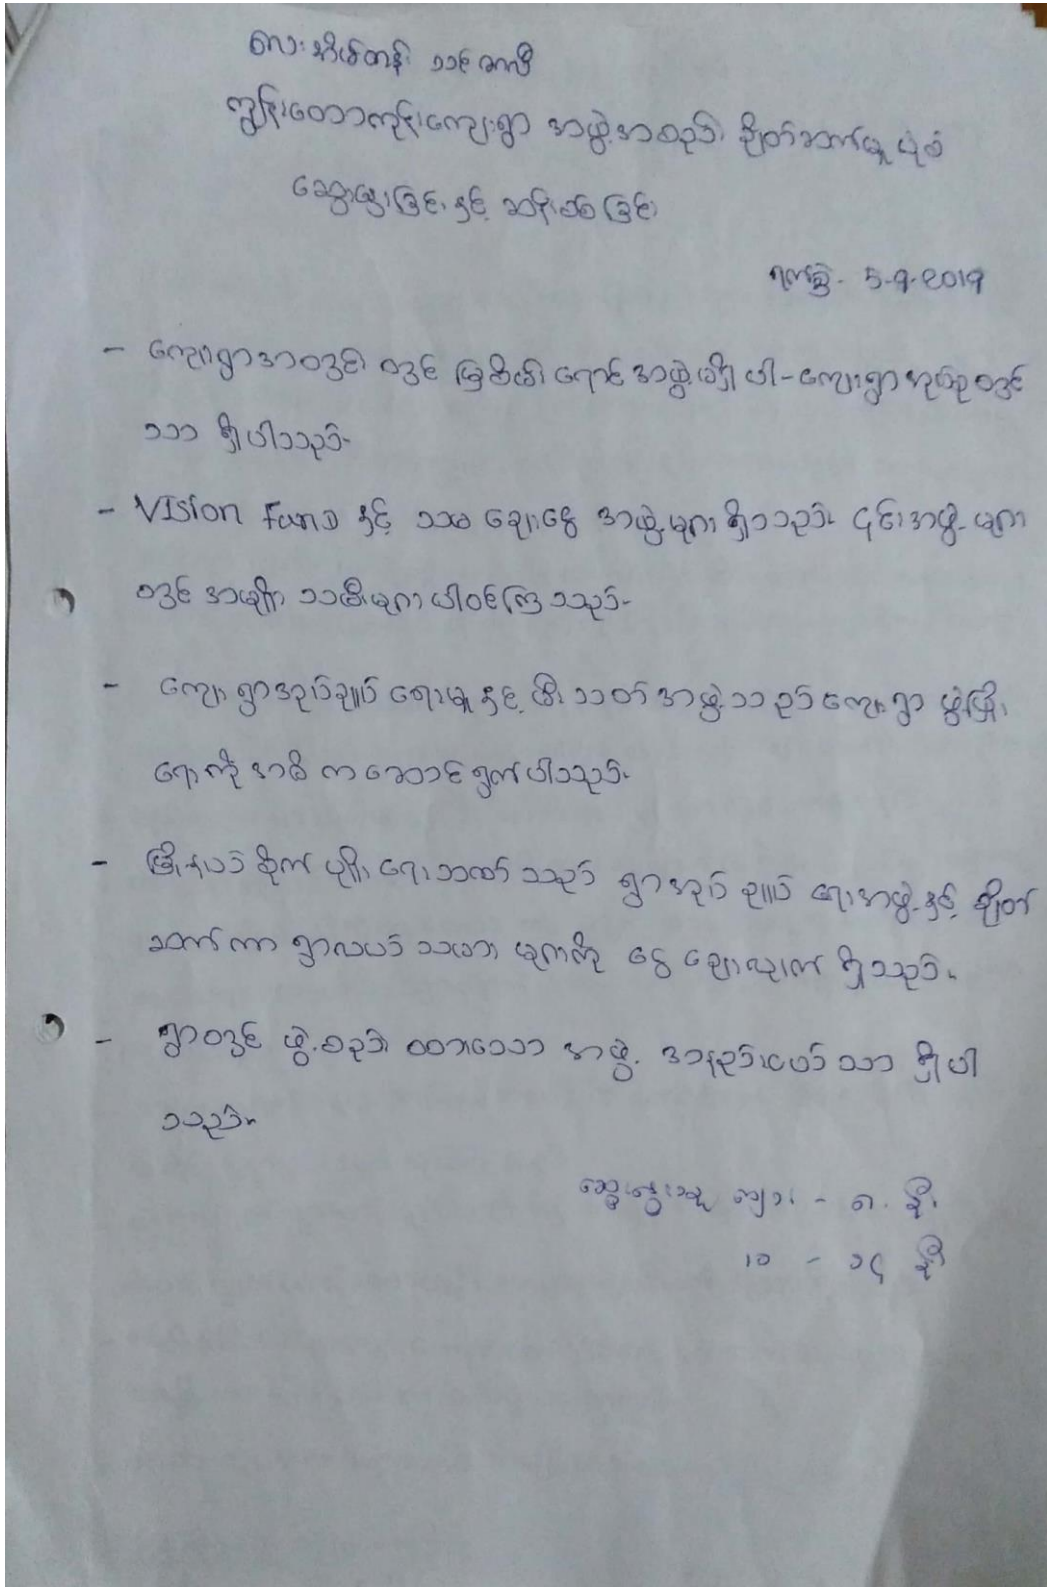 လေးအိမ်တန်း သင်္ဘောလီ
ကျွန်းတောကုန်းကျေးရွာ အဖွဲ့အစည်း ချိတ်ဆက်မှု ပုံစံ
ဆွေးနွေးခြင်း နှင့် ဆန်းစစ်ခြင်း
ရက်စွဲ- 5-9-2019
- ကျေးရွာအတွင်း တွင် မြစိမ်းရောင် အဖွဲ့မရှိပါ - ကျေးရွာအုပ်စုတွင်
သာ ရှိပါသည်။
- Vision Fund နှင့် သမချေးငွေ အဖွဲ့များ ရှိသည်။ ၎င်းအဖွဲ့များ
တွင် အမျိုးသမီးများ ပါဝင်ကြသည်။
- ကျေးရွာအုပ်ချုပ်ရေးမှူးနှင့် မီးသတ်အဖွဲ့သည် ကျေးရွာ ဖွံ့ဖြိုး
ရေးကို အဓိက ဆောင်ရွက်ပါသည်။
- မြို့နယ် စိုက်ပျိုးရေးဘဏ်သည် ရွာအုပ်ချုပ်ရေးအဖွဲ့နှင့် ချိတ်
ဆက်ကာ ရွာလယ်သမားများကို ငွေချေးလျက်ရှိသည်။
- ရွာတွင် ဖွဲ့စည်းထားသော အဖွဲ့ အနည်းငယ်သာ ရှိပါ
သည်။
ဆွေးနွေးသူ ကျား - ၈ ဦး
မ - ၁၄ ဦး